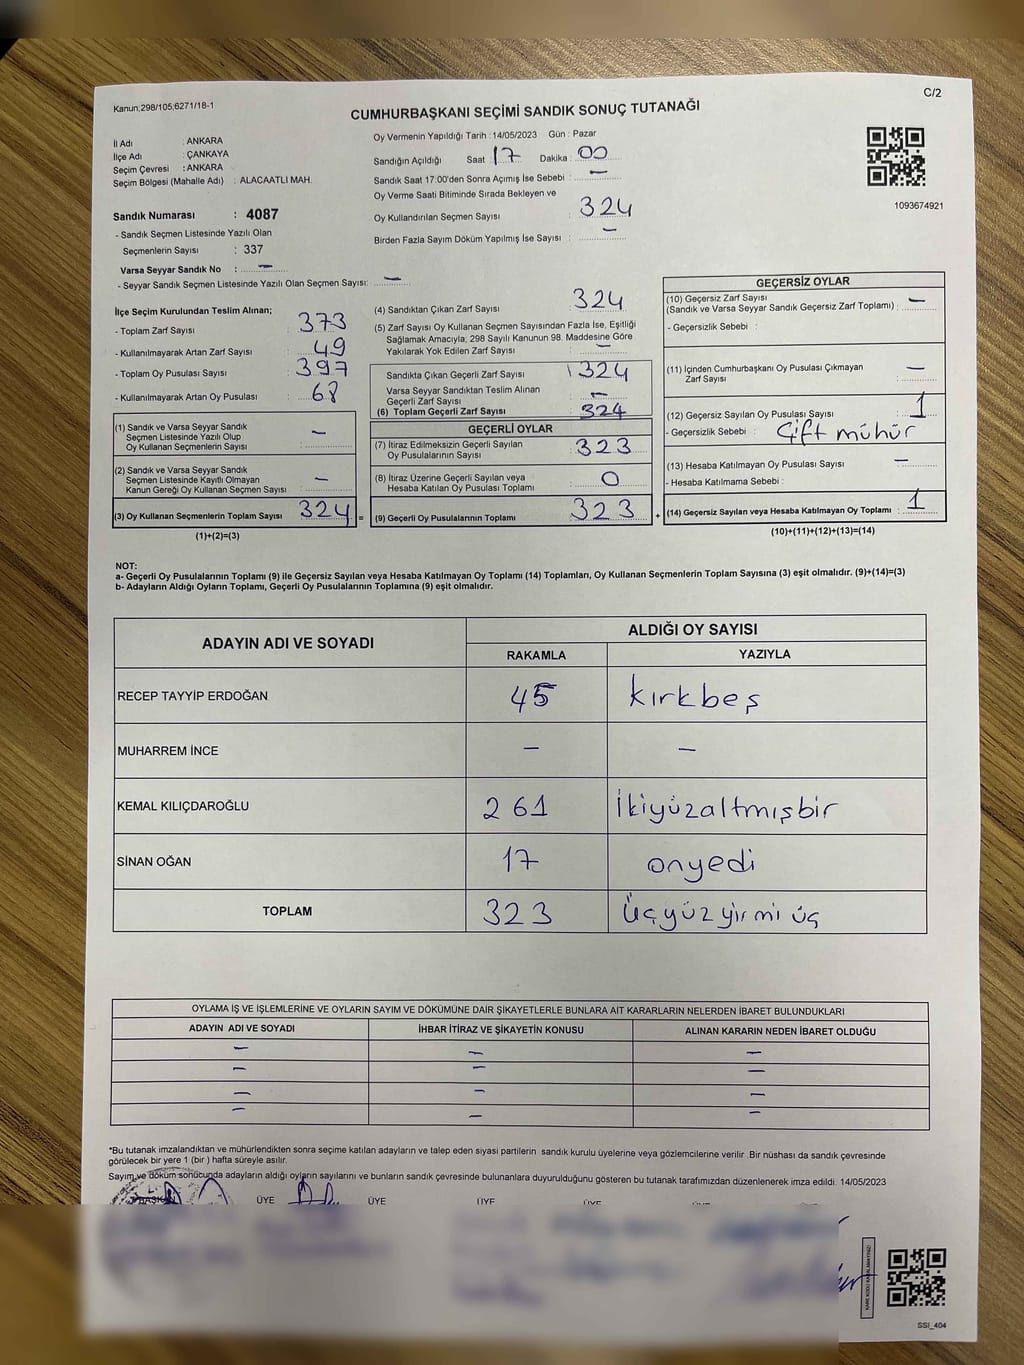 Kanun;298/105;6271/18-1
C/2
CUMHURBAŞKANI SEÇİMİ SANDIK SONUÇ TUTANAĞI
İl Adı : ANKARA
İlçe Adı : ÇANKAYA
Seçim Çevresi : ANKARA
Seçim Bölgesi (Mahalle Adı) : ALACAATLI MAH.
Sandık Numarası : 4087
- Sandık Seçmen Listesinde Yazılı Olan
Seçmenlerin Sayısı : 337
Varsa Seyyar Sandık No : —
- Seyyar Sandık Seçmen Listesinde Yazılı Olan Seçmen Sayısı: —
Oy Vermenin Yapıldığı Tarih : 14/05/2023 Gün : Pazar
Sandığın Açıldığı Saat : 17 Dakika : 00
Sandık Saat 17.00'den Sonra Açımış İse Sebebi : —
Oy Verme Saati Bitiminde Sırada Bekleyen ve
Oy Kullandırılan Seçmen Sayısı : 324
Birden Fazla Sayım Döküm Yapılmış İse Sayısı : —
1093674921
İlçe Seçim Kurulundan Teslim Alınan;
- Toplam Zarf Sayısı : 373
- Kullanılmayarak Artan Zarf Sayısı : 49
- Toplam Oy Pusulası Sayısı : 397
- Kullanılmayarak Artan Oy Pusulası : 68
(1) Sandık ve Varsa Seyyar Sandık
Seçmen Listesinde Yazılı Olup
Oy Kullanan Seçmenlerin Sayısı : —
(2) Sandık ve Varsa Seyyar Sandık
Seçmen Listesinde Kayıtlı Olmayan
Kanun Gereği Oy Kullanan Seçmen Sayısı : —
(3) Oy Kullanan Seçmenlerin Toplam Sayısı : 324 =
(1)+(2)=(3)
(4) Sandıktan Çıkan Zarf Sayısı : 324
(5) Zarf Sayısı Oy Kullanan Seçmen Sayısından Fazla İse, Eşitliği
Sağlamak Amacıyla, 298 Sayılı Kanunun 98. Maddesine Göre
Yakılarak Yok Edilen Zarf Sayısı : —
Sandıkta Çıkan Geçerli Zarf Sayısı : 324
Varsa Seyyar Sandıktan Teslim Alınan
Geçerli Zarf Sayısı : —
(6) Toplam Geçerli Zarf Sayısı : 324
GEÇERLİ OYLAR
(7) İtiraz Edilmeksizin Geçerli Sayılan
Oy Pusulalarının Sayısı : 323
(8) İtiraz Üzerine Geçerli Sayılan veya
Hesaba Katılan Oy Pusulası Toplamı : 0
(9) Geçerli Oy Pusulalarının Toplamı : 323 +
GEÇERSİZ OYLAR
(10) Geçersiz Zarf Sayısı
(Sandık ve Varsa Seyyar Sandık Geçersiz Zarf Toplamı) : —
- Geçersizlik Sebebi :
(11) İçinden Cumhurbaşkanı Oy Pusulası Çıkmayan
Zarf Sayısı : —
(12) Geçersiz Sayılan Oy Pusulası Sayısı : 1
- Geçersizlik Sebebi : Çift mühür
(13) Hesaba Katılmayan Oy Pusulası Sayısı : —
- Hesaba Katılmama Sebebi :
(14) Geçersiz Sayılan veya Hesaba Katılmayan Oy Toplamı : 1
(10)+(11)+(12)+(13)=(14)
NOT:
a- Geçerli Oy Pusulalarının Toplamı (9) ile Geçersiz Sayılan veya Hesaba Katılmayan Oy Toplamı (14) Toplamları, Oy Kullanan Seçmenlerin Toplam Sayısına (3) eşit olmalıdır. (9)+(14)=(3)
b- Adayların Aldığı Oyların Toplamı, Geçerli Oy Pusulalarının Toplamına (9) eşit olmalıdır.
ADAYIN ADI VE SOYADI
ALDIĞI OY SAYISI
RAKAMLA YAZIYLA
RECEP TAYYİP ERDOĞAN 45 kırkbeş
MUHARREM İNCE — —
KEMAL KILIÇDAROĞLU 261 İkiyüzaltmışbir
SİNAN OĞAN 17 onyedi
TOPLAM 323 Üçyüzyirmi üç
OYLAMA İŞ VE İŞLEMLERİNE VE OYLARIN SAYIM VE DÖKÜMÜNE DAİR ŞİKAYETLERLE BUNLARA AİT KARARLARIN NELERDEN İBARET BULUNDUKLARI
ADAYIN ADI VE SOYADI İHBAR İTİRAZ VE ŞİKAYETİN KONUSU ALINAN KARARIN NEDEN İBARET OLDUĞU
— — —
— — —
— — —
— — —
*Bu tutanak imzalandıktan ve mühürlendikten sonra seçime katılan adayların ve talep eden siyasi partilerin sandık kurulu üyelerine veya gözlemcilerine verilir .Bir nüshası da sandık çevresinde
görülecek bir yere 1 (bir ) hafta süreyle asılır.
Sayım ve döküm sonucunda adayların aldığı oyların sayılarını ve bunların sandık çevresinde bulunanlara duyurulduğunu gösteren bu tutanak tarafımızdan düzenlenerek imza edildi. 14/05/2023
BAŞKAN ÜYE ÜYE ÜYE ÜYE
SSI_404